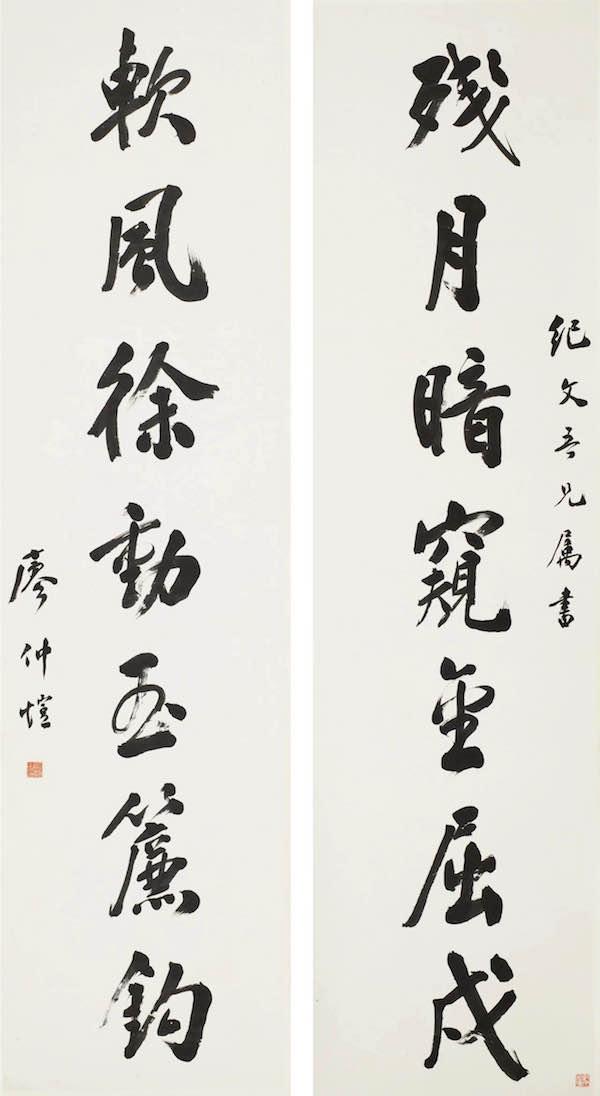 紀文吾兄属書
残月暗窺金屈戌
軟風徐動玉簾鈎
廖仲愷